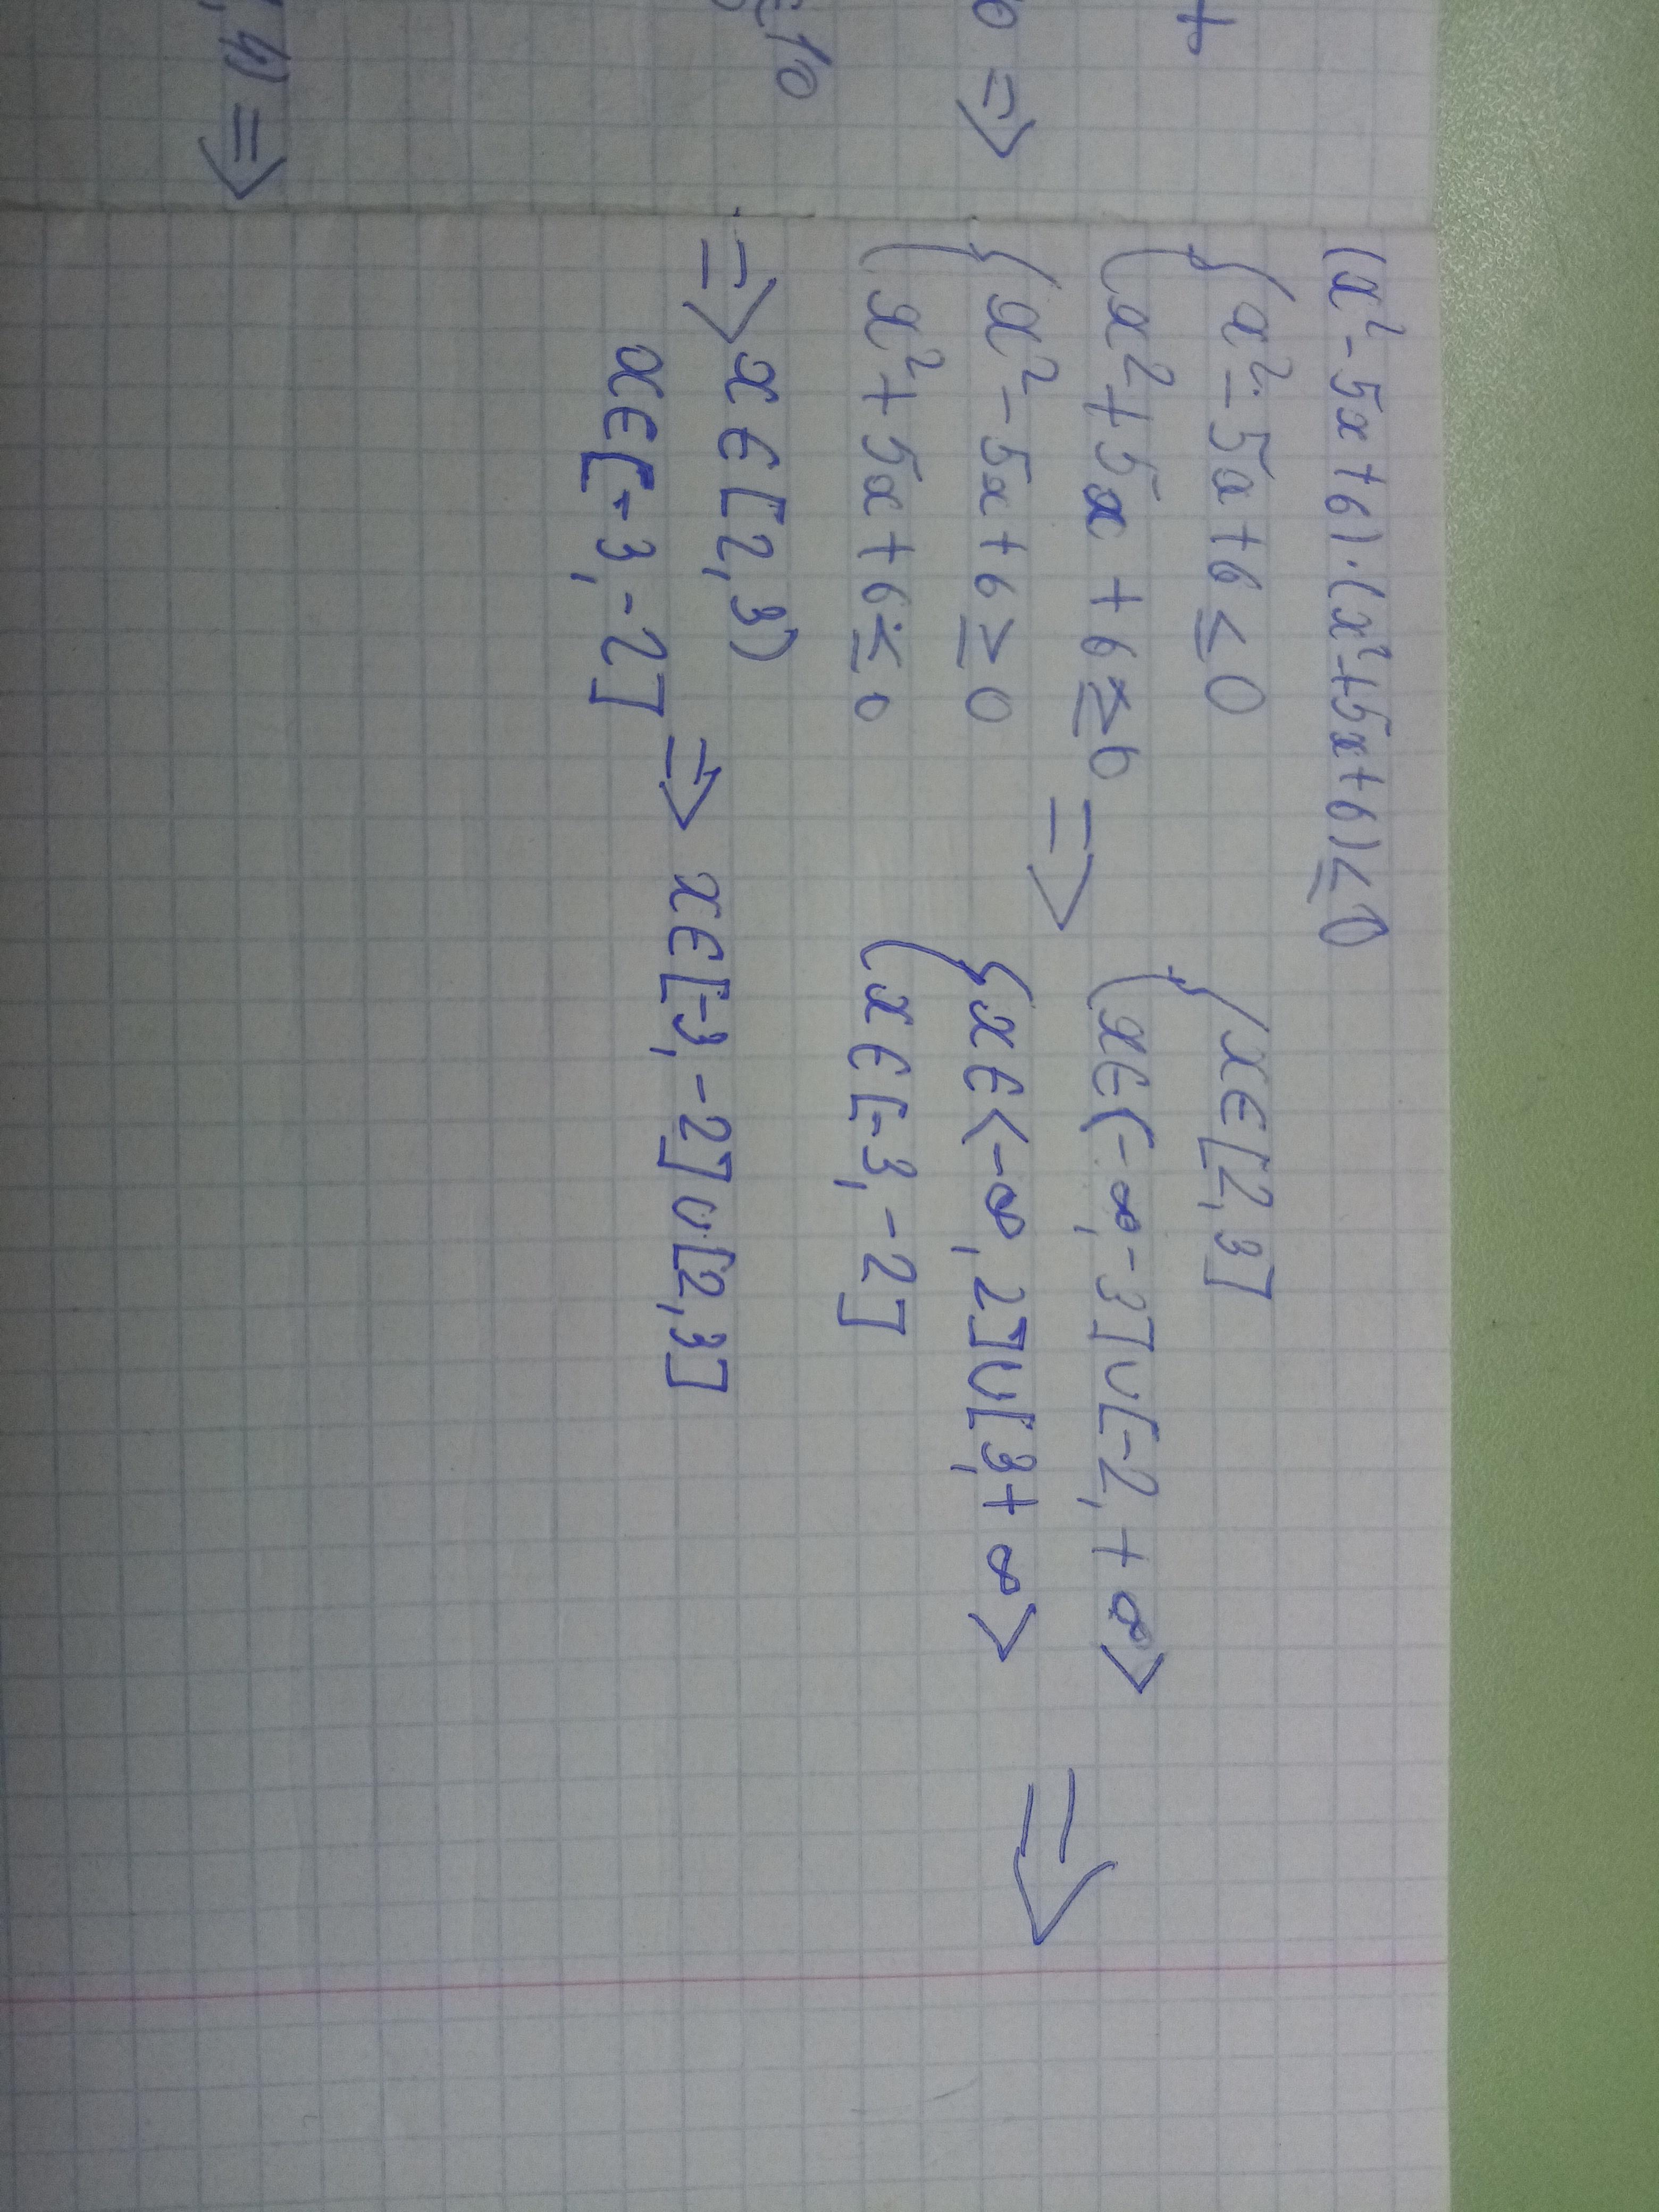 (x² - 5x + 6) · (x² + 5x + 6) ≤ 0
{ x² - 5x + 6 ≤ 0
{ x² + 5x + 6 ≥ 0
{ x² - 5x + 6 ≥ 0
{ x² + 5x + 6 ≤ 0
⇒
{ x ∈ [2, 3]
{ x ∈ (-∞, -3] ∪ [-2, +∞>
{ x ∈ <-∞, 2] ∪ [3, +∞>
{ x ∈ [-3, -2]
⇒
⇒ x ∈ [2, 3)
x ∈ [-3, -2]
⇒ x ∈ [-3, -2] ∪ [2, 3]
+
⇒
10
⇒